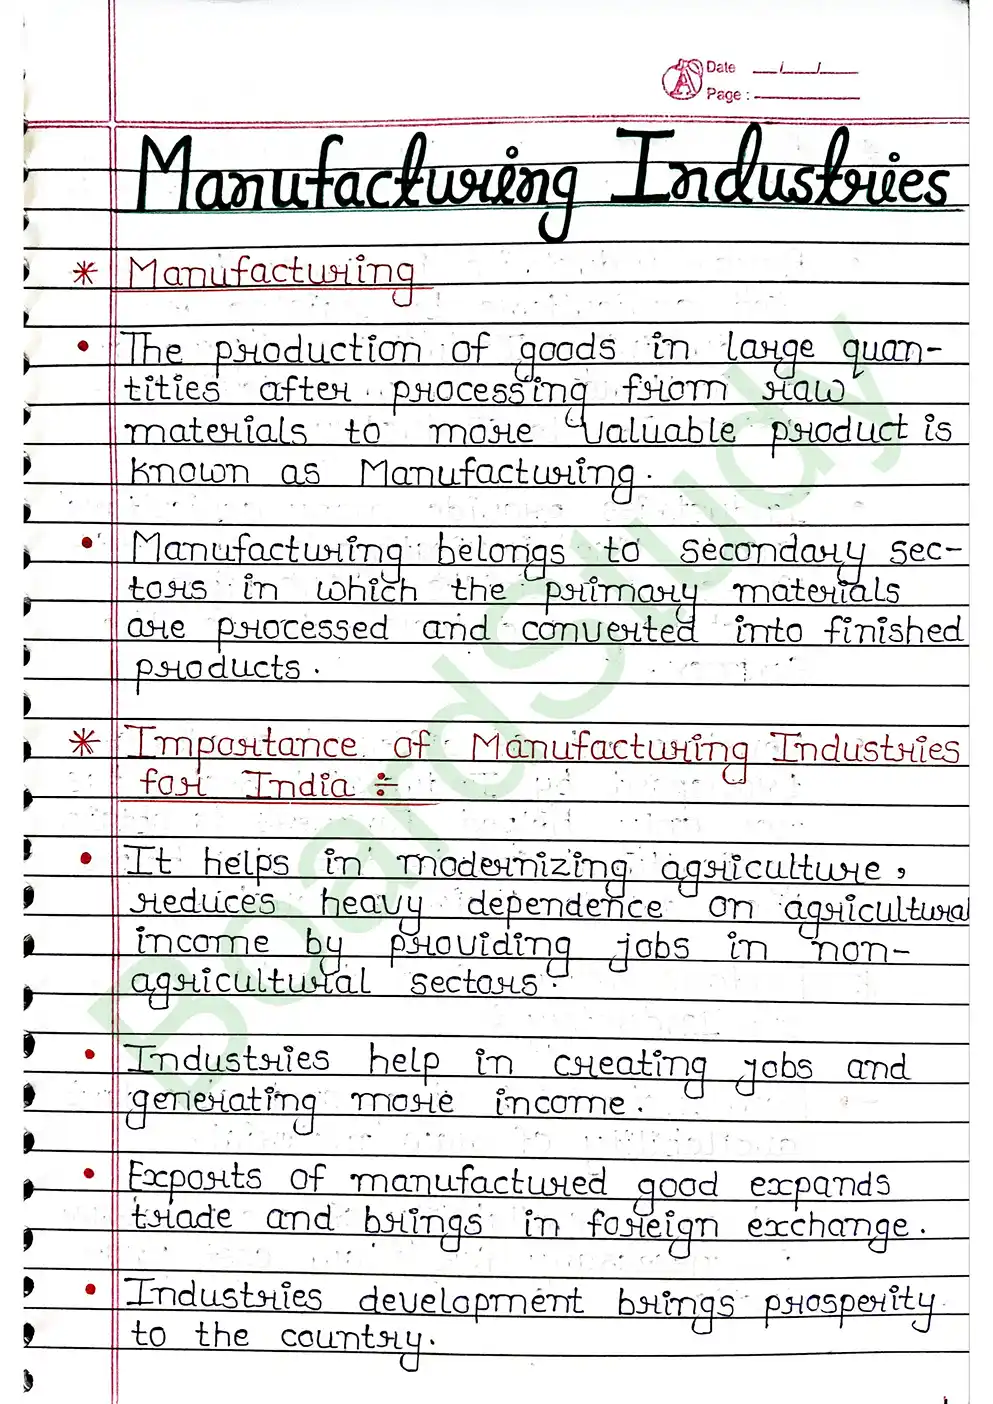 Date __/__/__
Page :
Manufacturing Industries
* Manufacturing
• The production of goods in large quan-
tities after processing from raw
materials to more valuable product is
known as Manufacturing.
• Manufacturing belongs to secondary sec-
tors in which the primary materials
are processed and converted into finished
products.
* Importance of Manufacturing Industries
for India ÷
• It helps in modernizing agriculture,
reduces heavy dependence on agricultural
income by providing jobs in non-
agricultural sectors.
• Industries help in creating jobs and
generating more income.
• Exports of manufactured good expands
trade and brings in foreign exchange.
• Industries development brings prosperity
to the country.
BoardStudy